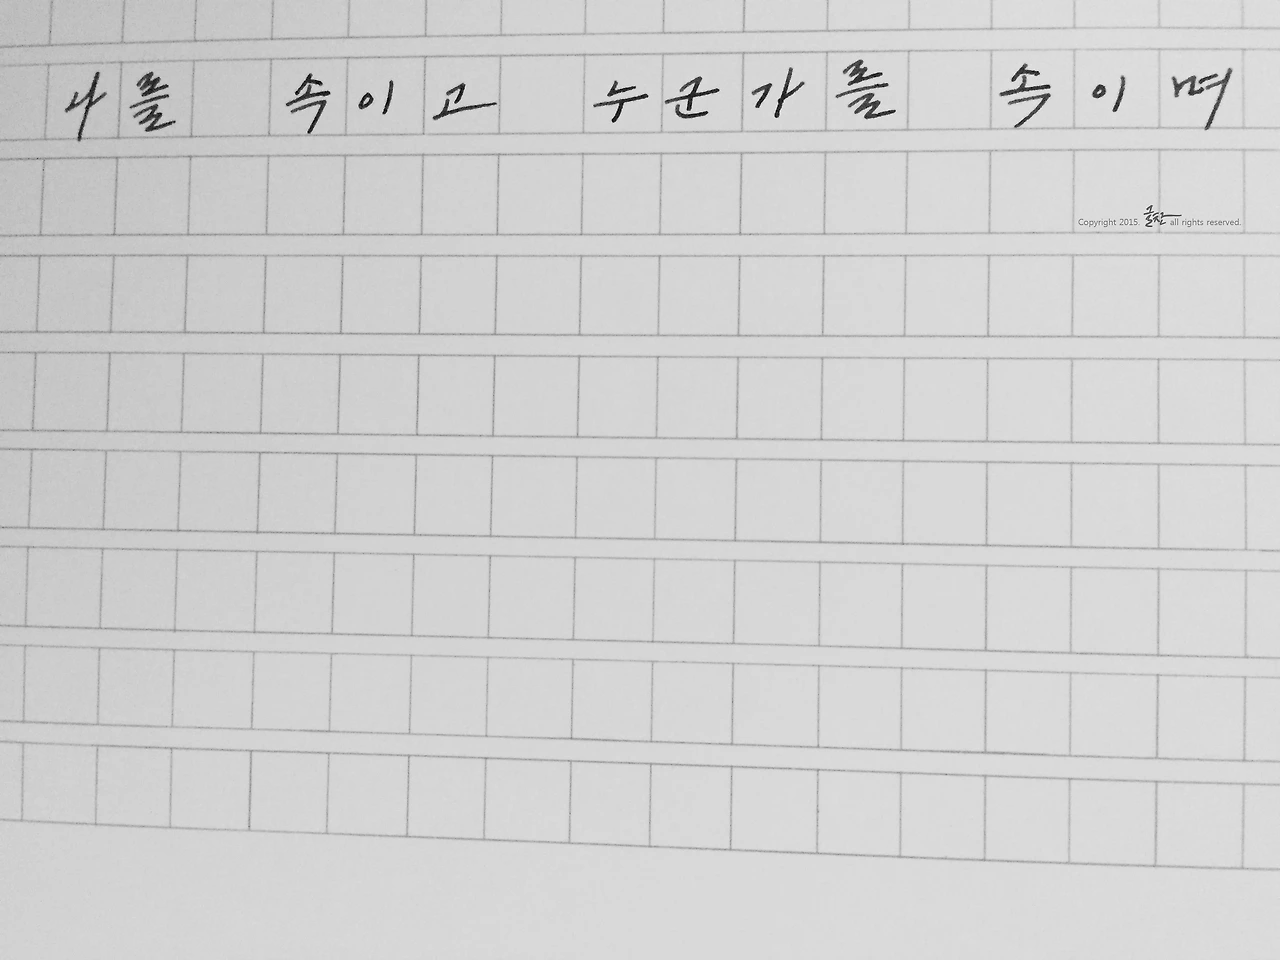 나를 속이고 누군가를 속이며
Copyright 2015. all rights reserved.